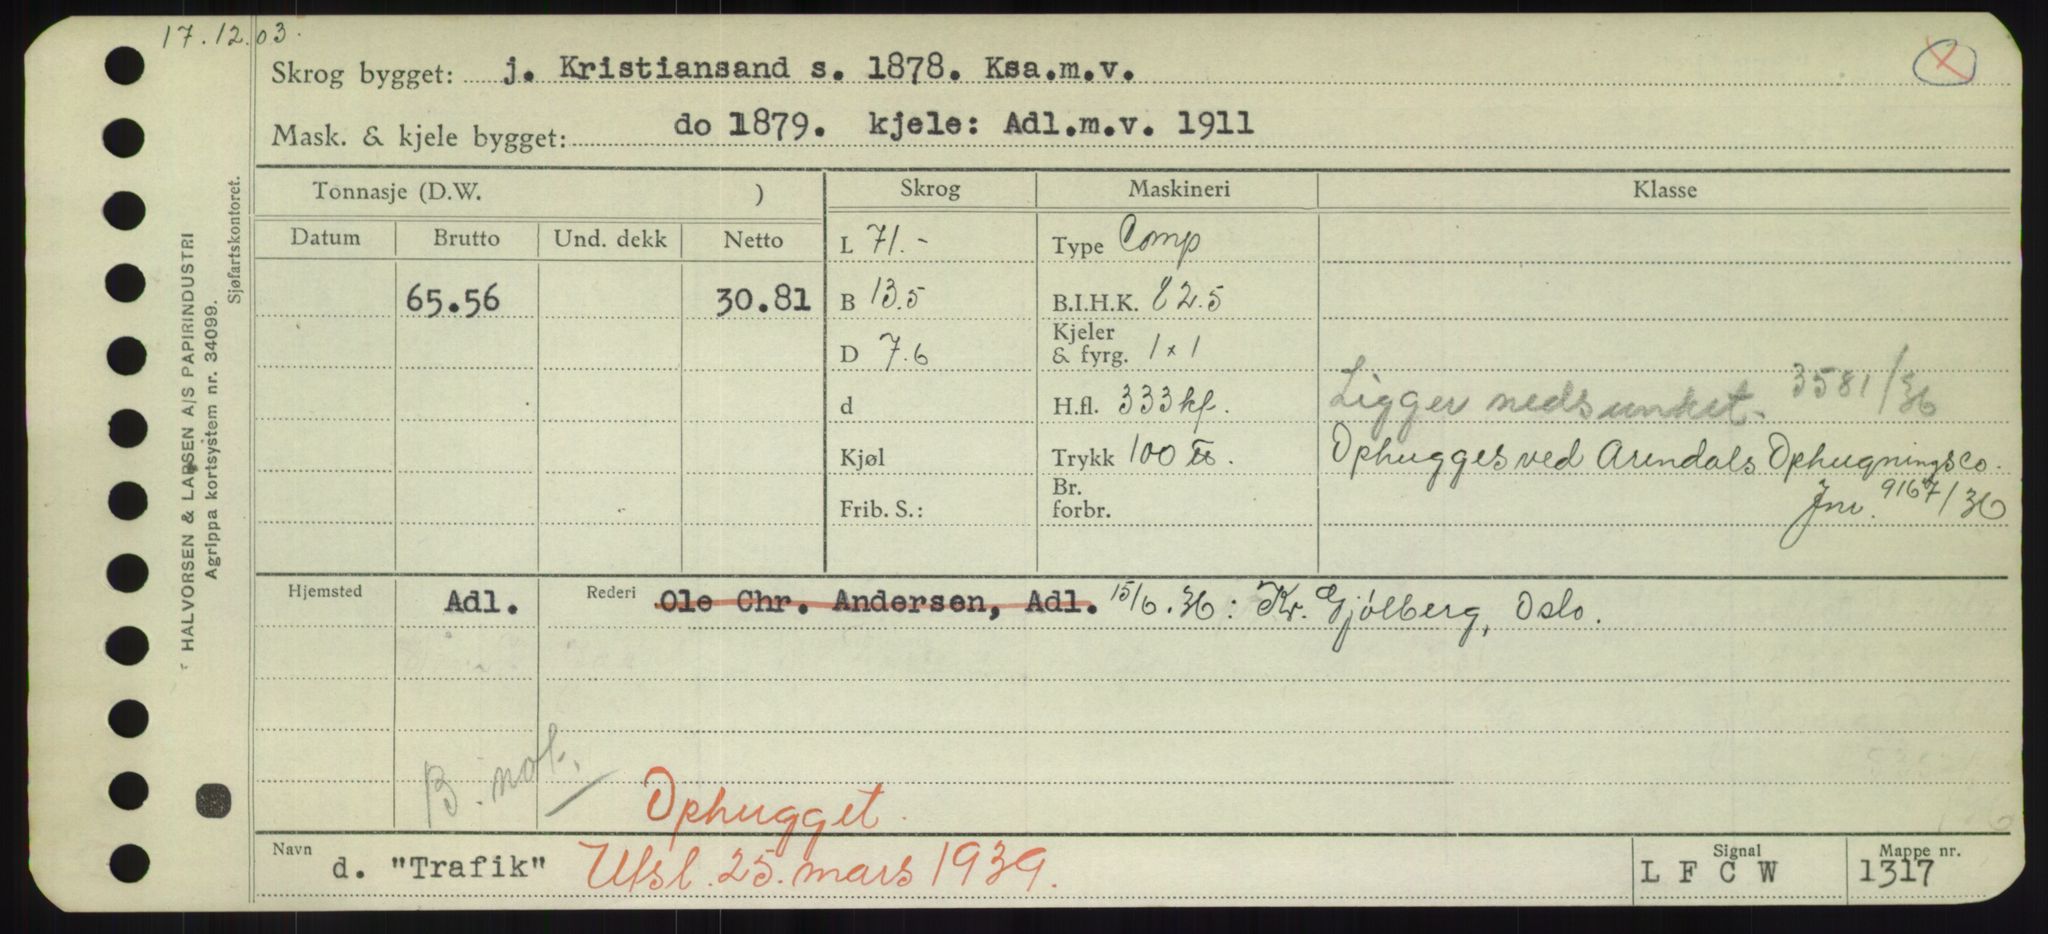 17.12.03.
Skrog bygget: j. Kristiansand s. 1878. Ksa.m.v.
Mask. & kjele bygget: do 1879. kjele: Adl.m.v. 1911
Tonnasje (D.W. ) Skrog Maskineri Klasse
Datum Brutto Und. dekk Netto L 71.- Type Comp
65.56 30.81 B 13.5 B.I.H.K. 82.5
D 7.6 Kjeler & fyrg. 1 x 1
d H.fl. 333 kf. Ligger nedsunket. 3581/36
Kjøl Trykk 100 lbs. Ophugges ved Arendals Ophugningsco.
Frib. S.: Br. forbr. Jnr. 9167/36
Hjemsted Adl. Rederi Ole Chr. Andersen, Adl. 15/6.36: Kr. Gjølberg, Oslo.
B. not.
Ophugget.
Navn d. "Trafik" Utsl. 25. mars 1939. Signal L F C W Mappe nr. 1317
HALVORSEN & LARSEN A/S PAPIRINDUSTRI
Agrippa kortsystem nr. 34099.
Sjøfartskontoret.